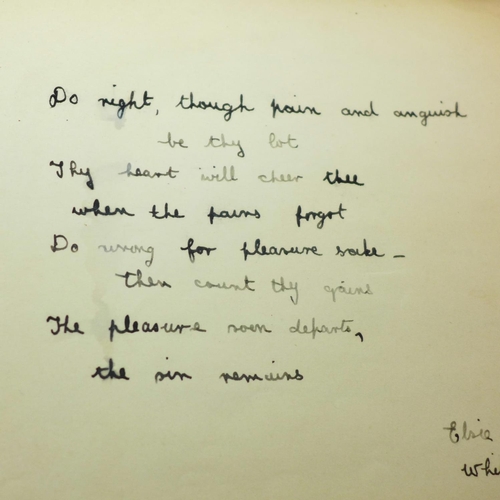 Do right, though pain and anguish
be thy lot
Thy heart will cheer thee
when the pains forgot
Do wrong for pleasure sake -
then count thy gains
The pleasure soon departs,
the sin remains
Elsie